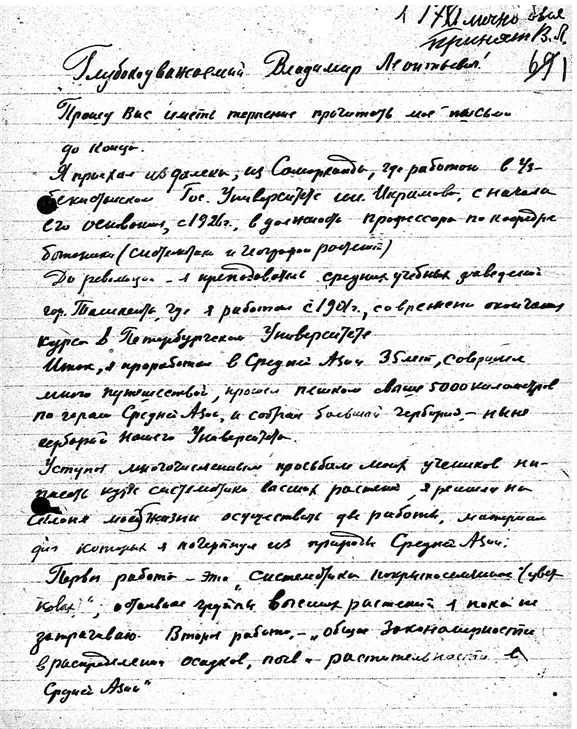 1/XI лично
принят В.Л.
69
Глубокоуважаемый Владимир Леонтьевич!
Прошу Вас иметь терпение прочитать моё письмо
до конца.
Я приехал издалека, из Самарканда, где работаю в Уз-
бекистанском Гос. Университете им. Икрамова, с начала
его основания, с 1926г., в должности профессора по кафедре
ботаники (систематика и география растений)
До революции – я преподаватель средних учебных заведений
гор. Ташкента, где я работал с 1901г., со времени окончания
курса в Петербургском Университете
Итак, я проработал в Средней Азии 35 лет, совершил
много путешествий, прошел пешком свыше 5000 километров
по горам Средней Азии, и собрал большой гербарий, – ныне
гербарий нашего Университета.
Уступая многочисленным просьбам моих учеников на-
писать курс систематики высших растений, я решил на
склоне моей жизни осуществить две работы, материал
для которых я почерпнул из природы Средней Азии:
Первая работа – это „систематика покрытосеменных (цвет
ковых)"; остальные группы высших растений я пока не
затрагиваю. Вторая работа, – „общие закономерности
в распределении осадков, почв и растительности в
Средней Азии"